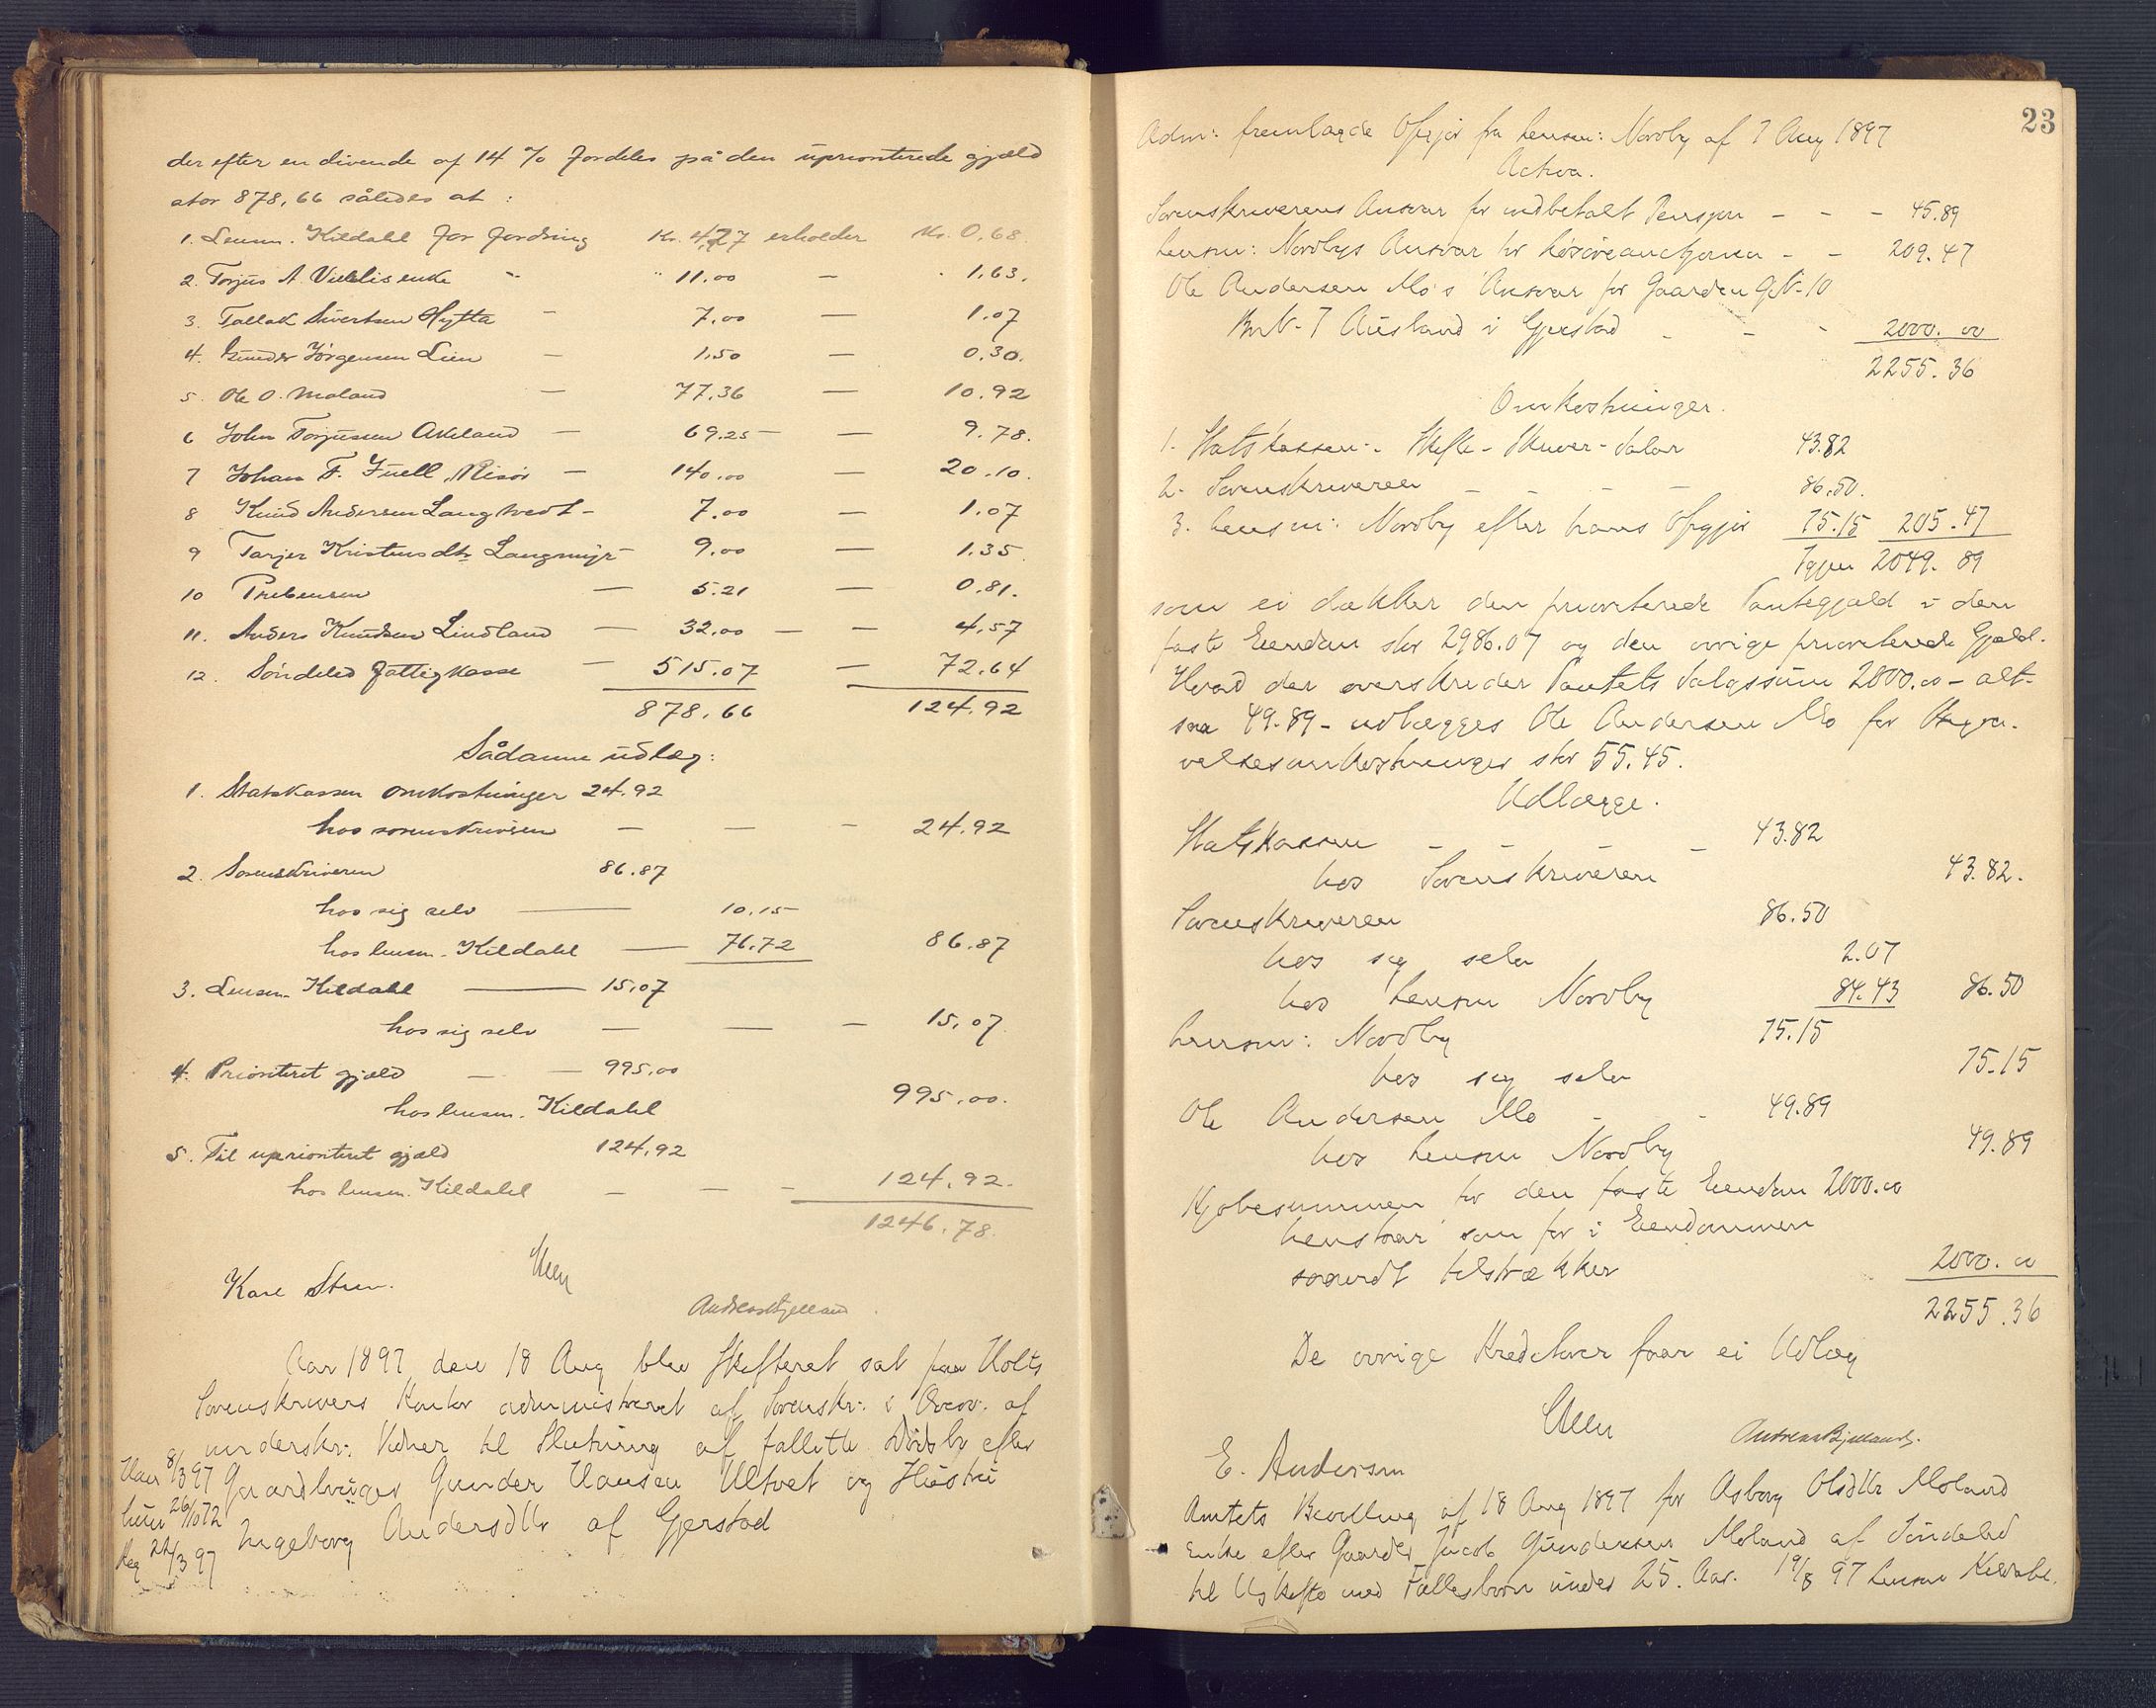 der efter en divende af 14 % fordeles på den uprioriterede gjæld
stor 878,66 således at :
1. Lensm. Kildahl for fordring Kr. 4,27 erholder Kr. 0,68.
2. Torjus A. enke " " 11.00 — " 1,63.
3. Tallak Sivertsen Hytta - 7.00 — 1.07
4. Gunder Jørgensen Lien — 1,50 — 0.30.
5. Ole O. Moland — 77.36 — 10.92
6 John Torjussen Akeland — 69.25 — 9.78.
7 Johan F. Juell, Risør — 140.00 — 20.10.
8 Knud Andersen Langtvedt - 7.00 — 1.07
9 Tarjer Kristensdtr Langmyr - 9.00 — 1.35
10 Prebensen — 5.21 — 0.81.
11. Anders Knudsen Lindland — 32.00 — — 4.57
12. Søndeled fattigkasse — 515.07 — 72.64
878.66 124.92
Sådanne udlæg:
1. Statskassen omkostninger 24.92
hos sorenskriveren — — — 24.92
2. Sorenskriveren 86.87
hos sig selv — 10.15
hos lensm. Kildahl — 76.72 86.87
3. Lensm. Kildahl — 15,07
hos sig selv — — — 15,07.
4. Prioriteret gjæld — — 995,00
hos lensm. Kildahl 995,00.
5. Til uprioriteret gjæld 124,92
hos lensm. Kildahl — — - 124,92.
1246.78.
Karl Steen.
Andreas Bjelland.
Aar 1897 den 18 Aug blev Skifteret sat paa Holts
Sorenskrivers Kontor administreret af Sorenskr: i Overv. af
underskr: Vidner til Slutning af fallitte Dødsbo efter
8/3 97 Gaardbruger Gunder Hansen Ultvet og Hustru
26/10 72 Ingeborg Andersdtr af Gjerstad
22/3 97
23
Adm: fremlagde Opgjør fra Lensm: Nordby af 7 Aug 1897
Activa.
Sorenskriverens Ansvar for indbetalt Pension - - - 45.89
Lensm: Nordbys Ansvar for Løsøreauctionen - - 209.47
Ole Andersen Mo's Ansvar for Gaarden GN-10
BrN-7 Ausland i Gjerstad - - - 2000.00
2255.36
Omkostninger.
1. Statskassen: Skifte-Skriver-Salær 43.82
2. Sorenskriveren - - - - 86.50.
3. Lensm: Nordby efter hans Opgjør 75.15 205.47
Igjen 2049.89
som ei dækker den prioriterede Pantegjæld i den
faste Eiendom stor 2986.07 og den øvrige prioriterede Gjæld.
Hvad der overskrider Pantets Salgssum 2000.00 - alt-
saa 49.89 - udlægges Ole Andersen Mo for Begra-
velsesomkostninger stor 55.45.
Udlægge.
Statskassen - - - - 43.82
hos Sorenskriveren 43.82.
Sorenskriveren 86.50
hos sig selv 2.07
hos Lensm Nordby 84.43 86.50
Lensm: Nordby 75.15
hos sig selv 75.15
Ole Andersen Mo - - 49.89
hos Lensm Nordby 49.89
Kjøbesummen for den faste Eiendom 2000.00
henstaar som før i Eiendommen
saavidt tilstrækker 2000.00
2255.36
De øvrige Kreditorer faar ei Udlæg
E. Andersen Andreas Bjelland.
Amtets Bevilling af 18 Aug 1897 for Asborg Olsdtr Moland
Enke efter Gaardbr Jacob Gundersen Moland af Søndeled
til Uskifte med Fællesbørn under 25. Aar. 19/8 97 Lensm Kildahl.